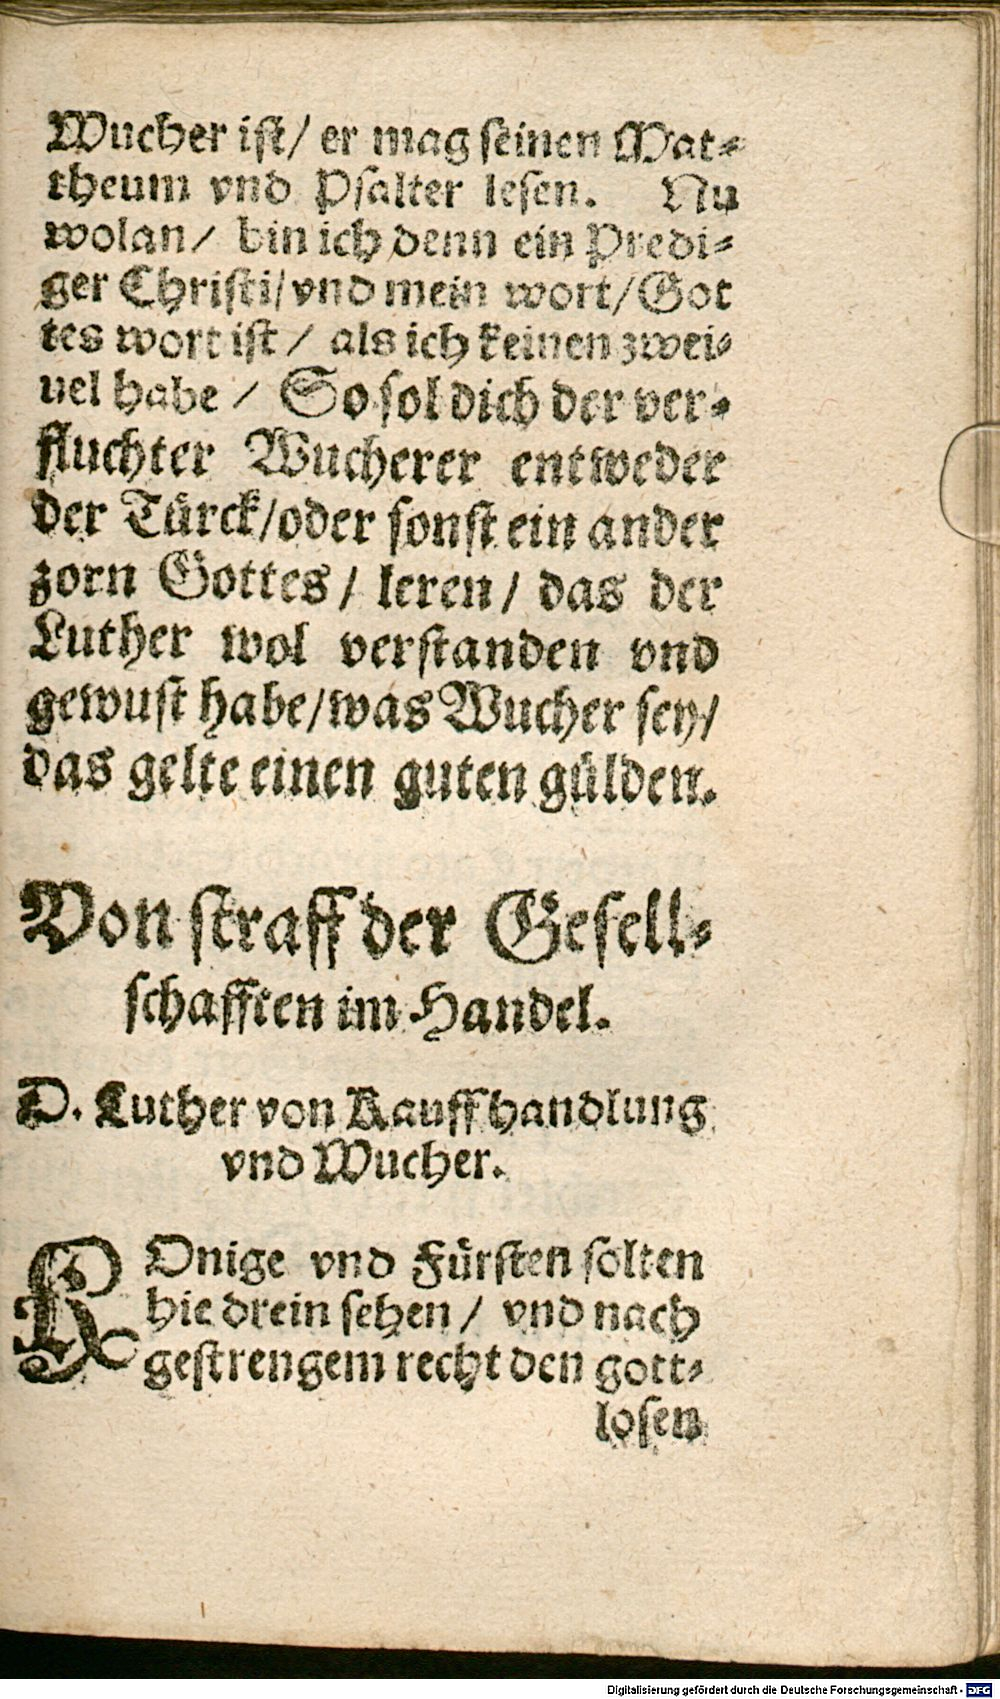 Wucher ist/ er mag seinen Mat-
theum vnd Psalter lesen. Nu
wolan/ bin ich denn ein Predi-
ger Christi/ vnd mein wort/ Got
tes wort ist/ als ich keinen zwei-
uel habe/ So sol dich der ver-
fluchter Wucherer entweder
der Türck/ oder sonst ein ander
zorn Gottes/ leren/ das der
Luther wol verstanden vnd
gewust habe/ was Wucher sey/
das gelte einen guten gülden.
Von straff der Gesell-
schafften im Handel.
D. Luther von Kauffhandlung
vnd Wucher.
KOnige vnd Fürsten solten
hie drein sehen/ vnd nach
gestrengem recht den gott-
losen
Digitalisierung gefördert durch die Deutsche Forschungsgemeinschaft - DFG